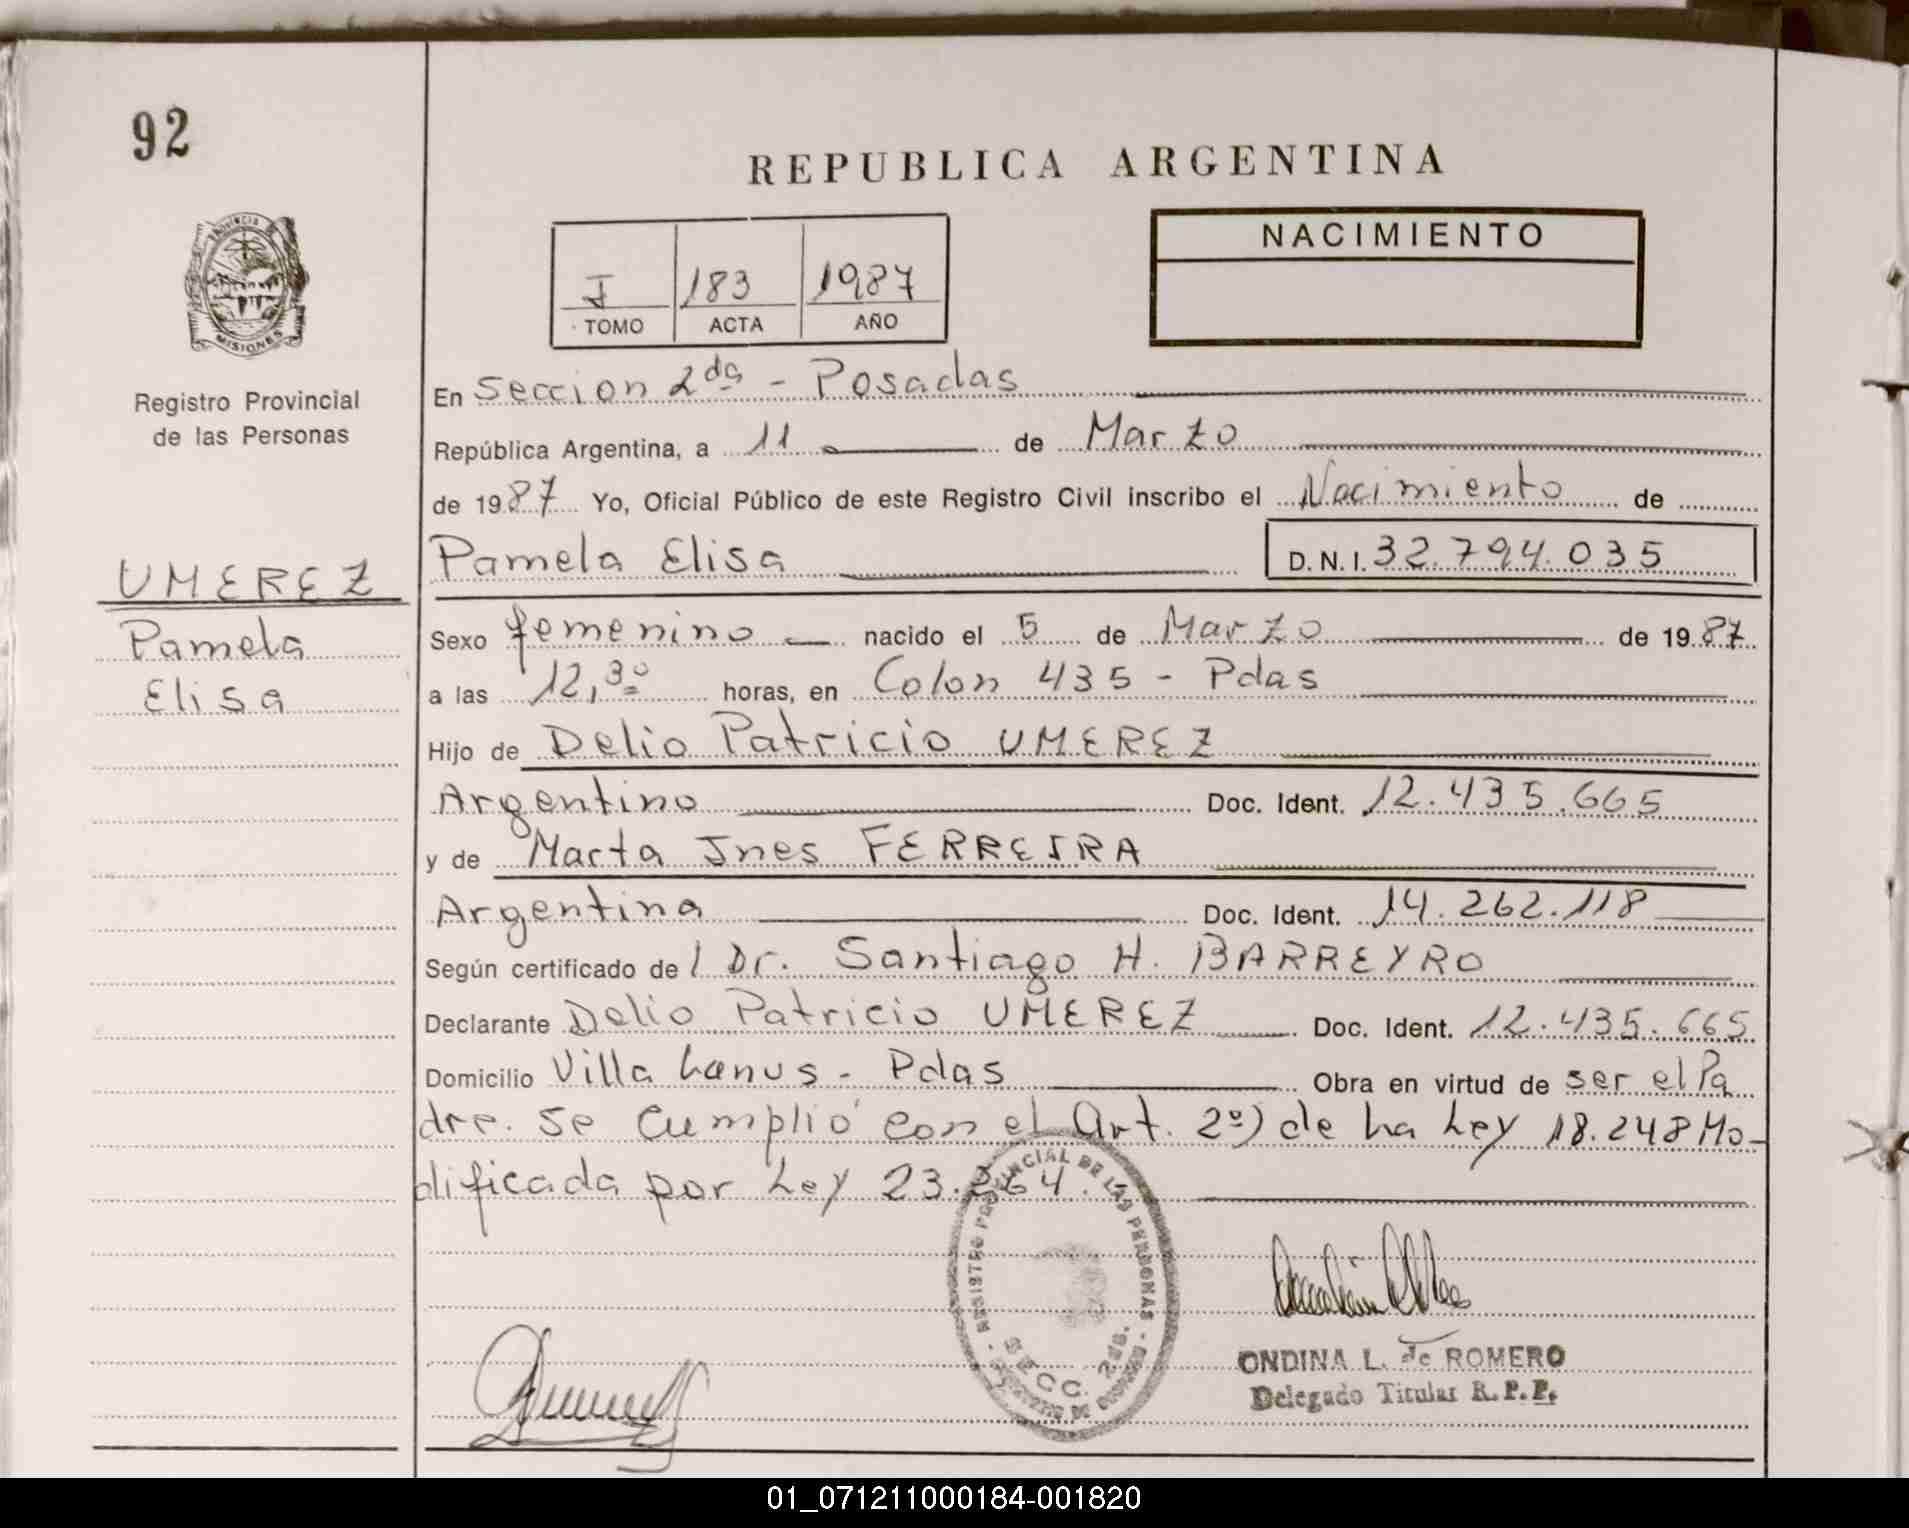 92
REPUBLICA ARGENTINA
PROVINCIA
MISIONES
Registro Provincial
de las Personas
I 183 1987
TOMO ACTA AÑO
NACIMIENTO
En Seccion 2da - Posadas
República Argentina, a 11 de Marzo
de 1987 Yo, Oficial Público de este Registro Civil inscribo el Nacimiento de
Pamela Elisa D.N.I. 32.794.035
UMEREZ
Pamela
Elisa
Sexo femenino nacido el 5 de Marzo de 1987
a las 12,30 horas, en Colon 435 - Pdas
Hijo de Delio Patricio UMEREZ
Argentino Doc. Ident. 12.435.665
y de Marta Ines FERREIRA
Argentina Doc. Ident. 14.262.118
Según certificado de / Dr. Santiago H. BARREYRO
Declarante Delio Patricio UMEREZ Doc. Ident. 12.435.665
Domicilio Villa Lanus - Pdas Obra en virtud de ser el Pa
dre. Se Cumplió con el Art. 2º) de La Ley 18.248 Mo-
dificada por Ley 23.264.
REGISTRO PROVINCIAL DE LAS PERSONAS
SECC. 2da.
ONDINA L. de ROMERO
Delegado Titular R.P.P.
01_071211000184-001820